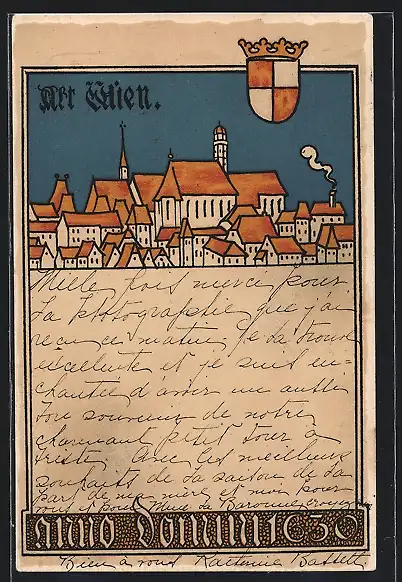 Alt Wien.
Mille fois merci pour
la photographie que j'ai
reçu ce matin, je la trouve
excellente et je suis en-
chantée d'avoir un aussi
bon souvenir de notre
charmant petit tour à
Areste. Avec les meilleurs
souhaits de la saison de la
part de ma mère et moi pour
vous et pour Mme la Baronne, croyez
Anno Domini 1630
Bien à vous Katherine Bassett